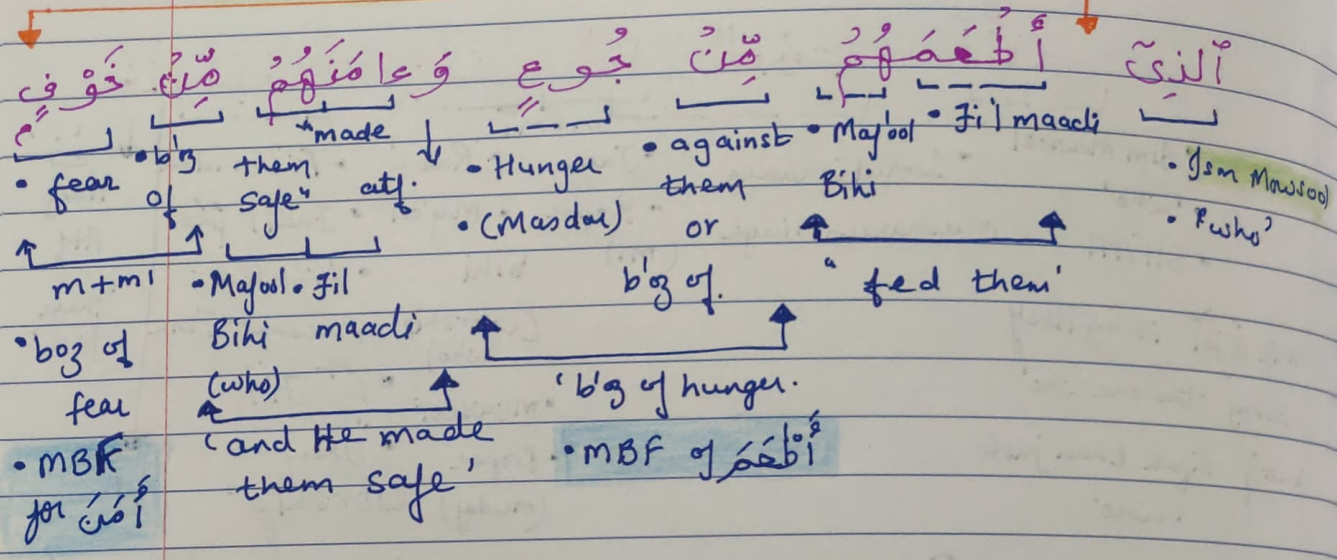 ٱلَّذِىٓ أَطْعَمَهُم مِّن جُوعٍ وَءَامَنَهُم مِّنْ خَوْفٍ
• Ism Mawsool
• 'who'
• Fi'l maadi
• Maf'ool
Bihi
" fed them'
• against
them
or
b'oz of.
• Hunger
• (Masdar)
'b'oz of hunger.
• MBF of أَطْعَمَ
atf.
"made
them
safe"
• Maf'ool • Fil
Bihi maadi
(who)
'and He made
them safe'
• b'oz
of
• fear
m + m'
• boz of
fear
• MBF
for أَمَنَ